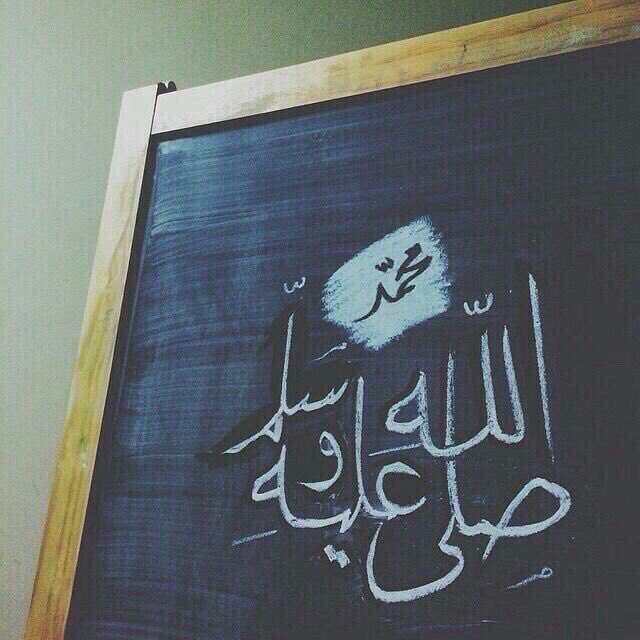 محمّد
صلى الله عليه وسلّم